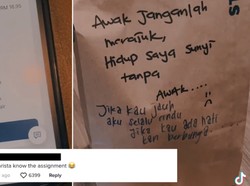 Awak Janganlah
merajuk,
Hidup saya sunyi
tanpa
AWAK....
Jika kau jauh
aku selalu rindu
Jika kau ada hati
ku berbunga
rista know the assignment 😂
ago
6399
Reply